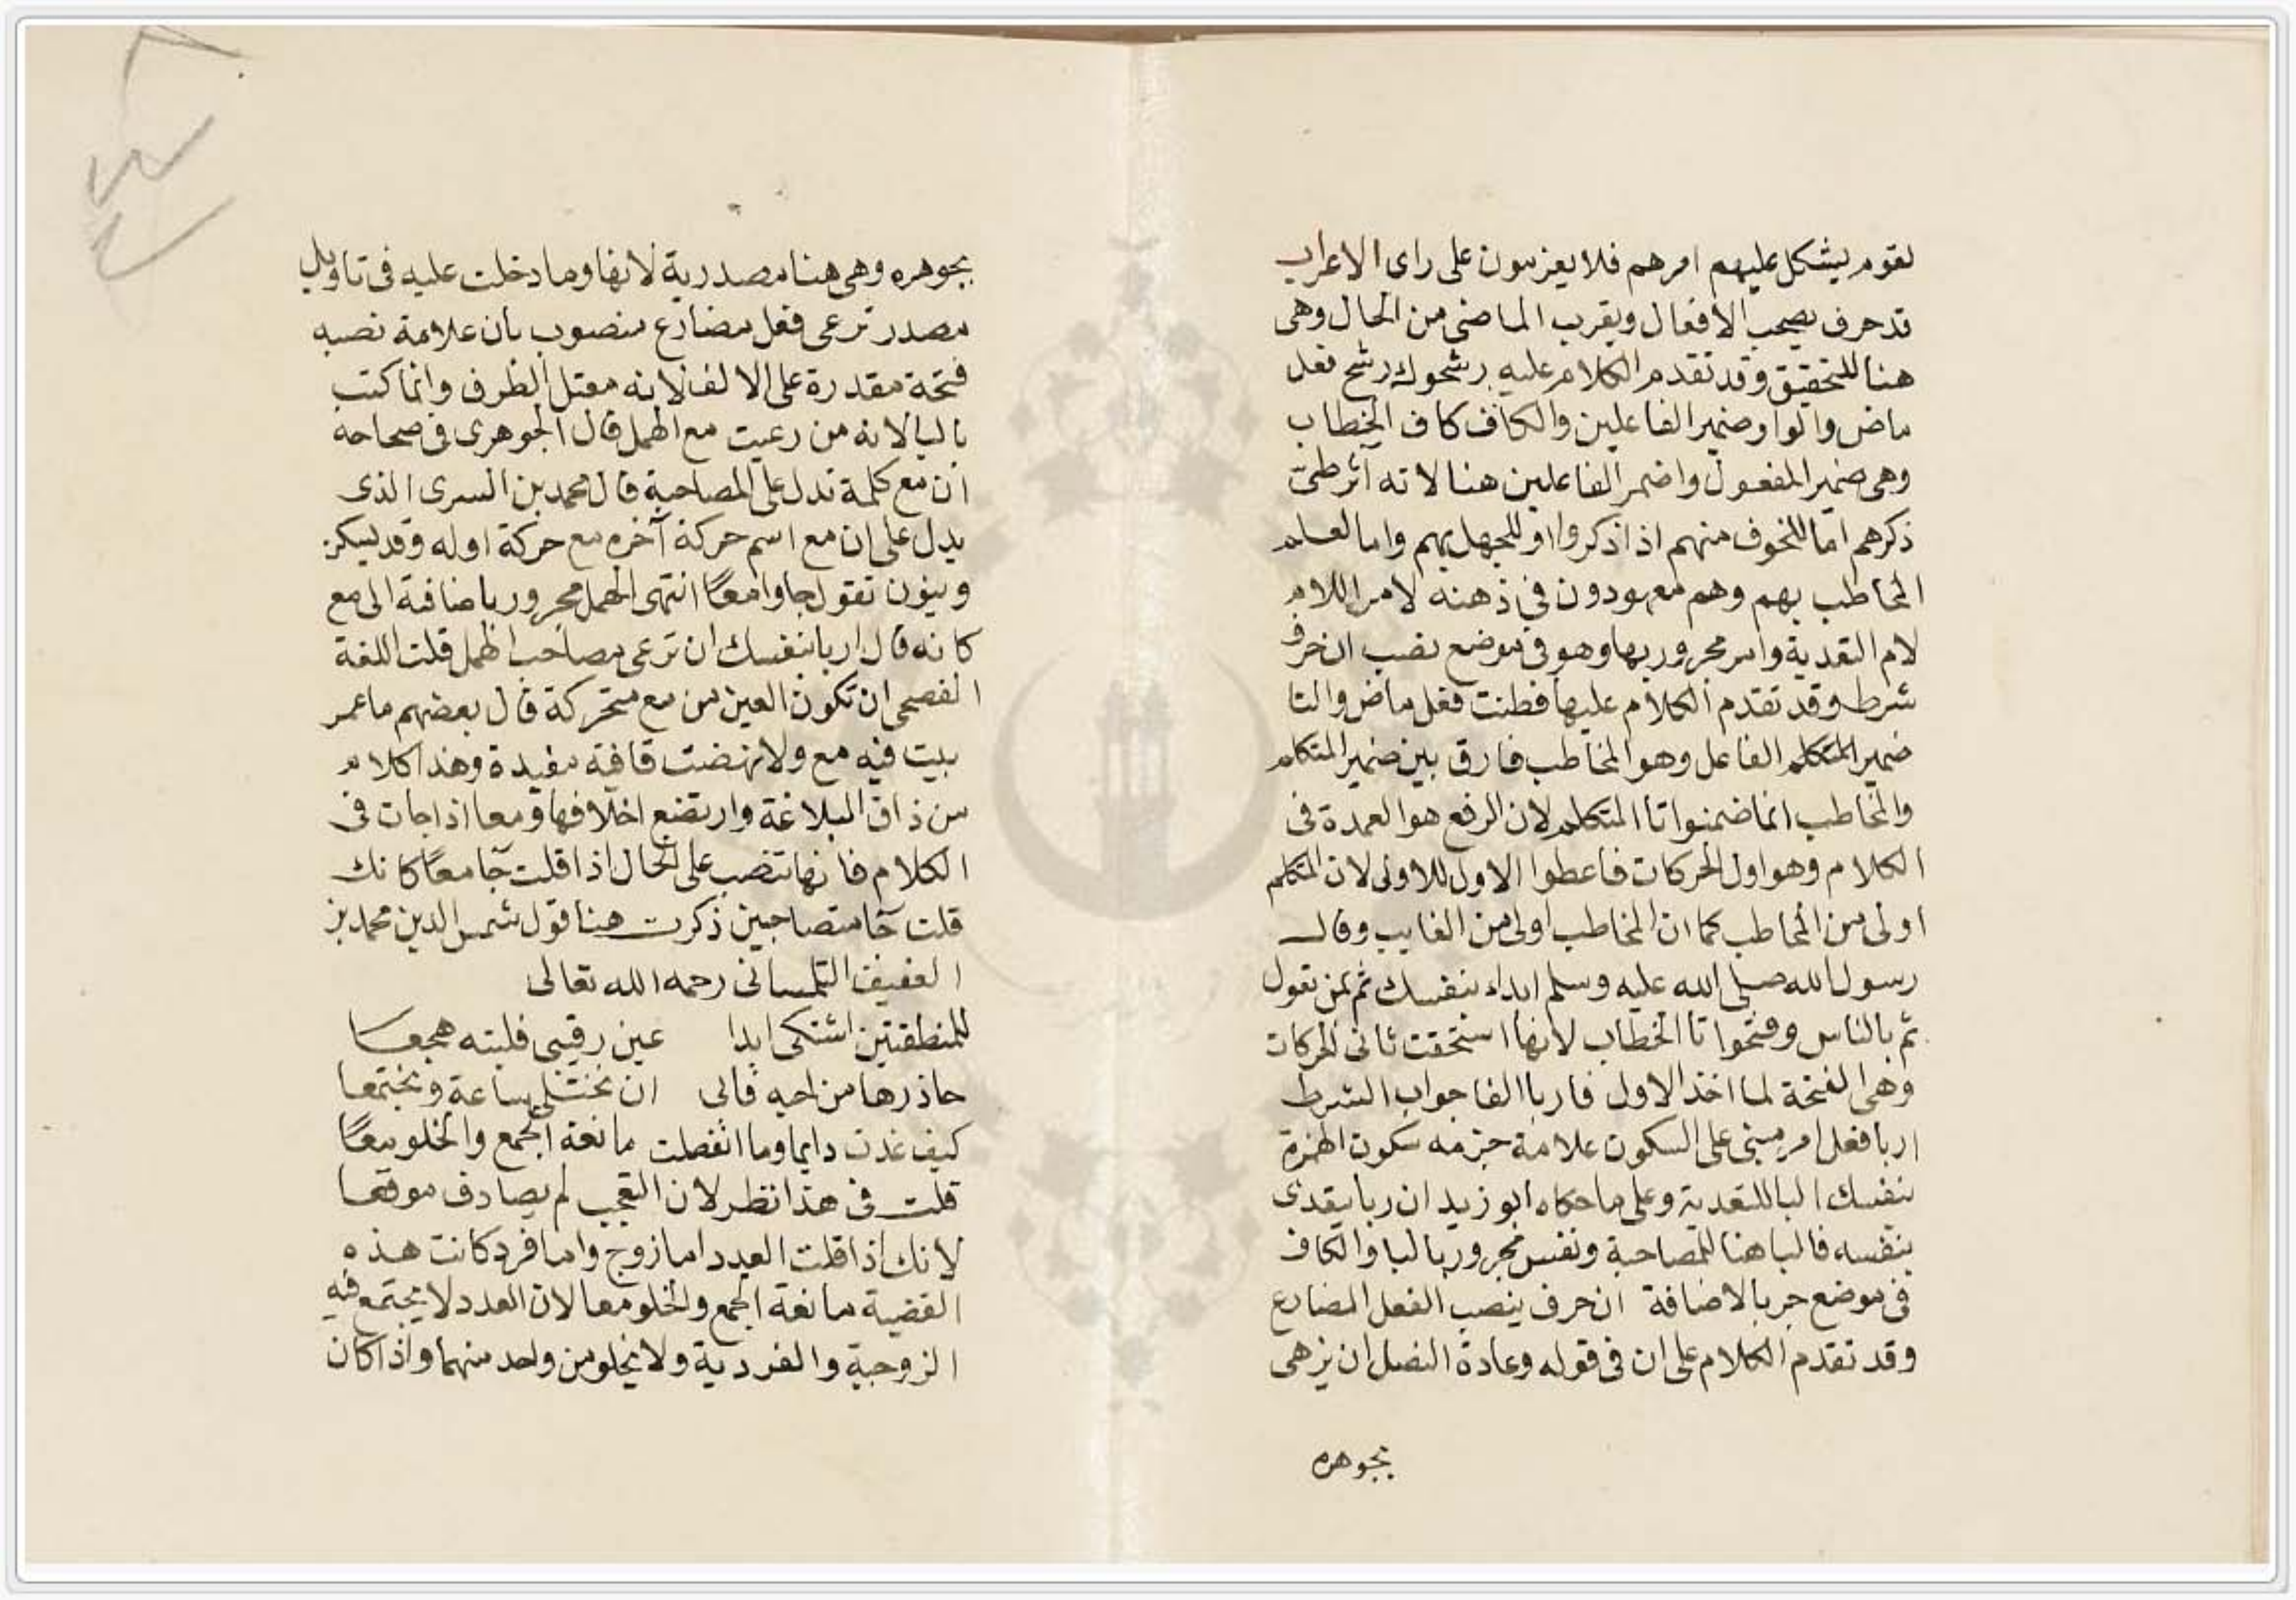 لقوم يشكل عليهم امرهم فلا يعزمون على راى الاعراب
قد حرف يصحب الافعال ويقرب الماضى من الحال وهى
هنا للتحقيق وقد تقدم الكلام عليه رشحوك رشح فعل
ماض والواو ضمير الفاعلين والكاف كاف الخطاب
وهى ضمير المفعول واضمر الفاعلين هنا لانه اثر طى
ذكرهم اما للخوف منهم اذا ذكروا او للجهل بهم واما لعلم
المخاطب بهم وهم معهودون فى ذهنه لامر اللام
لام التعدية وامر مجرور بها وهو فى موضع نصب ان حرف
شرط وقد تقدم الكلام عليها فطنت فعل ماض والتا
ضمير المتكلم الفاعل وهو المخاطب فارق بين ضمير المتكلم
والمخاطب انما ضمنوا تا المتكلم لان الرفع هو العمدة فى
الكلام وهو اول الحركات فاعطوا الاول للاولى لان المتكلم
اولى من المخاطب كما ان المخاطب اولى من الغايب وقال
رسول الله صلى الله عليه وسلم ابداء بنفسك ثم بمن تعول
ثم بالناس وفتحوا تا الخطاب لانها استحقت ثانى الحركات
وهى الفتحة لما اخذ الاول فاربا الفا جواب الشرط
اربا فعل امر مبنى على السكون علامة جزمه سكون الهمزة
بنفسك البا للتعدية وعلى ما حكاه ابو زيد ان ربا يتعدى
بنفسه فالبا هنا للمصاحبة ونفس مجرور بالبا والكاف
فى موضع جر بالاضافة ان حرف ينصب الفعل المضارع
وقد تقدم الكلام على ان فى قوله وعادة النصل ان يزهى
بجوهره
بجوهره وهى هنا مصدرية لانها وما دخلت عليه فى تاويل
مصدر ترعى فعل مضارع منصوب بان علامة نصبه
فتحة مقدرة على الالف لانه معتل الطرف وانما كتب
باليا لانه من رعيت مع الهمل قال الجوهرى فى صحاحه
ان مع كلمة تدل على المصاحبة قال محمد بن السرى الذى
يدل على ان مع اسم حركة آخره مع حركة اوله وقد يسكن
وينون تقول جاوا معًا انتهى الهمل مجرور باضافة الى مع
كانه قال اربا بنفسك ان ترعى مصاحب الهمل قلت اللغة
الفصحى ان تكون العين من مع متحركة قال بعضهم ما عمر
بيت فيه مع ولا نهضت قافية مقيدة وهذا كلام
من ذاق البلاغة وارتضع اخلافها ومعا اذا جات فى
الكلام فانها تنصب على الحال اذا قلت جا معًا كانك
قلت جا متصاحبين ذكرت هنا قول شمس الدين محمد بن
العفيف التلمسانى رحمه الله تعالى
للمنطقتين اشتكى ابدا عين رقيبى فليته هجعا
حاذرها من احبه فابى ان نختلى ساعة ونجتمعا
كيف غدت دايما وما انفصلت مانعة الجمع والخلو معًا
قلت فى هذا نظر لان التعجب لم يصادف موقعها
لانك اذا قلت العدد اما زوج واما فرد كانت هذه
القضية مانعة الجمع والخلو معا لان العدد لا يجتمع فيه
الزوجية والفردية ولا يخلو من واحد منهما واذا كان